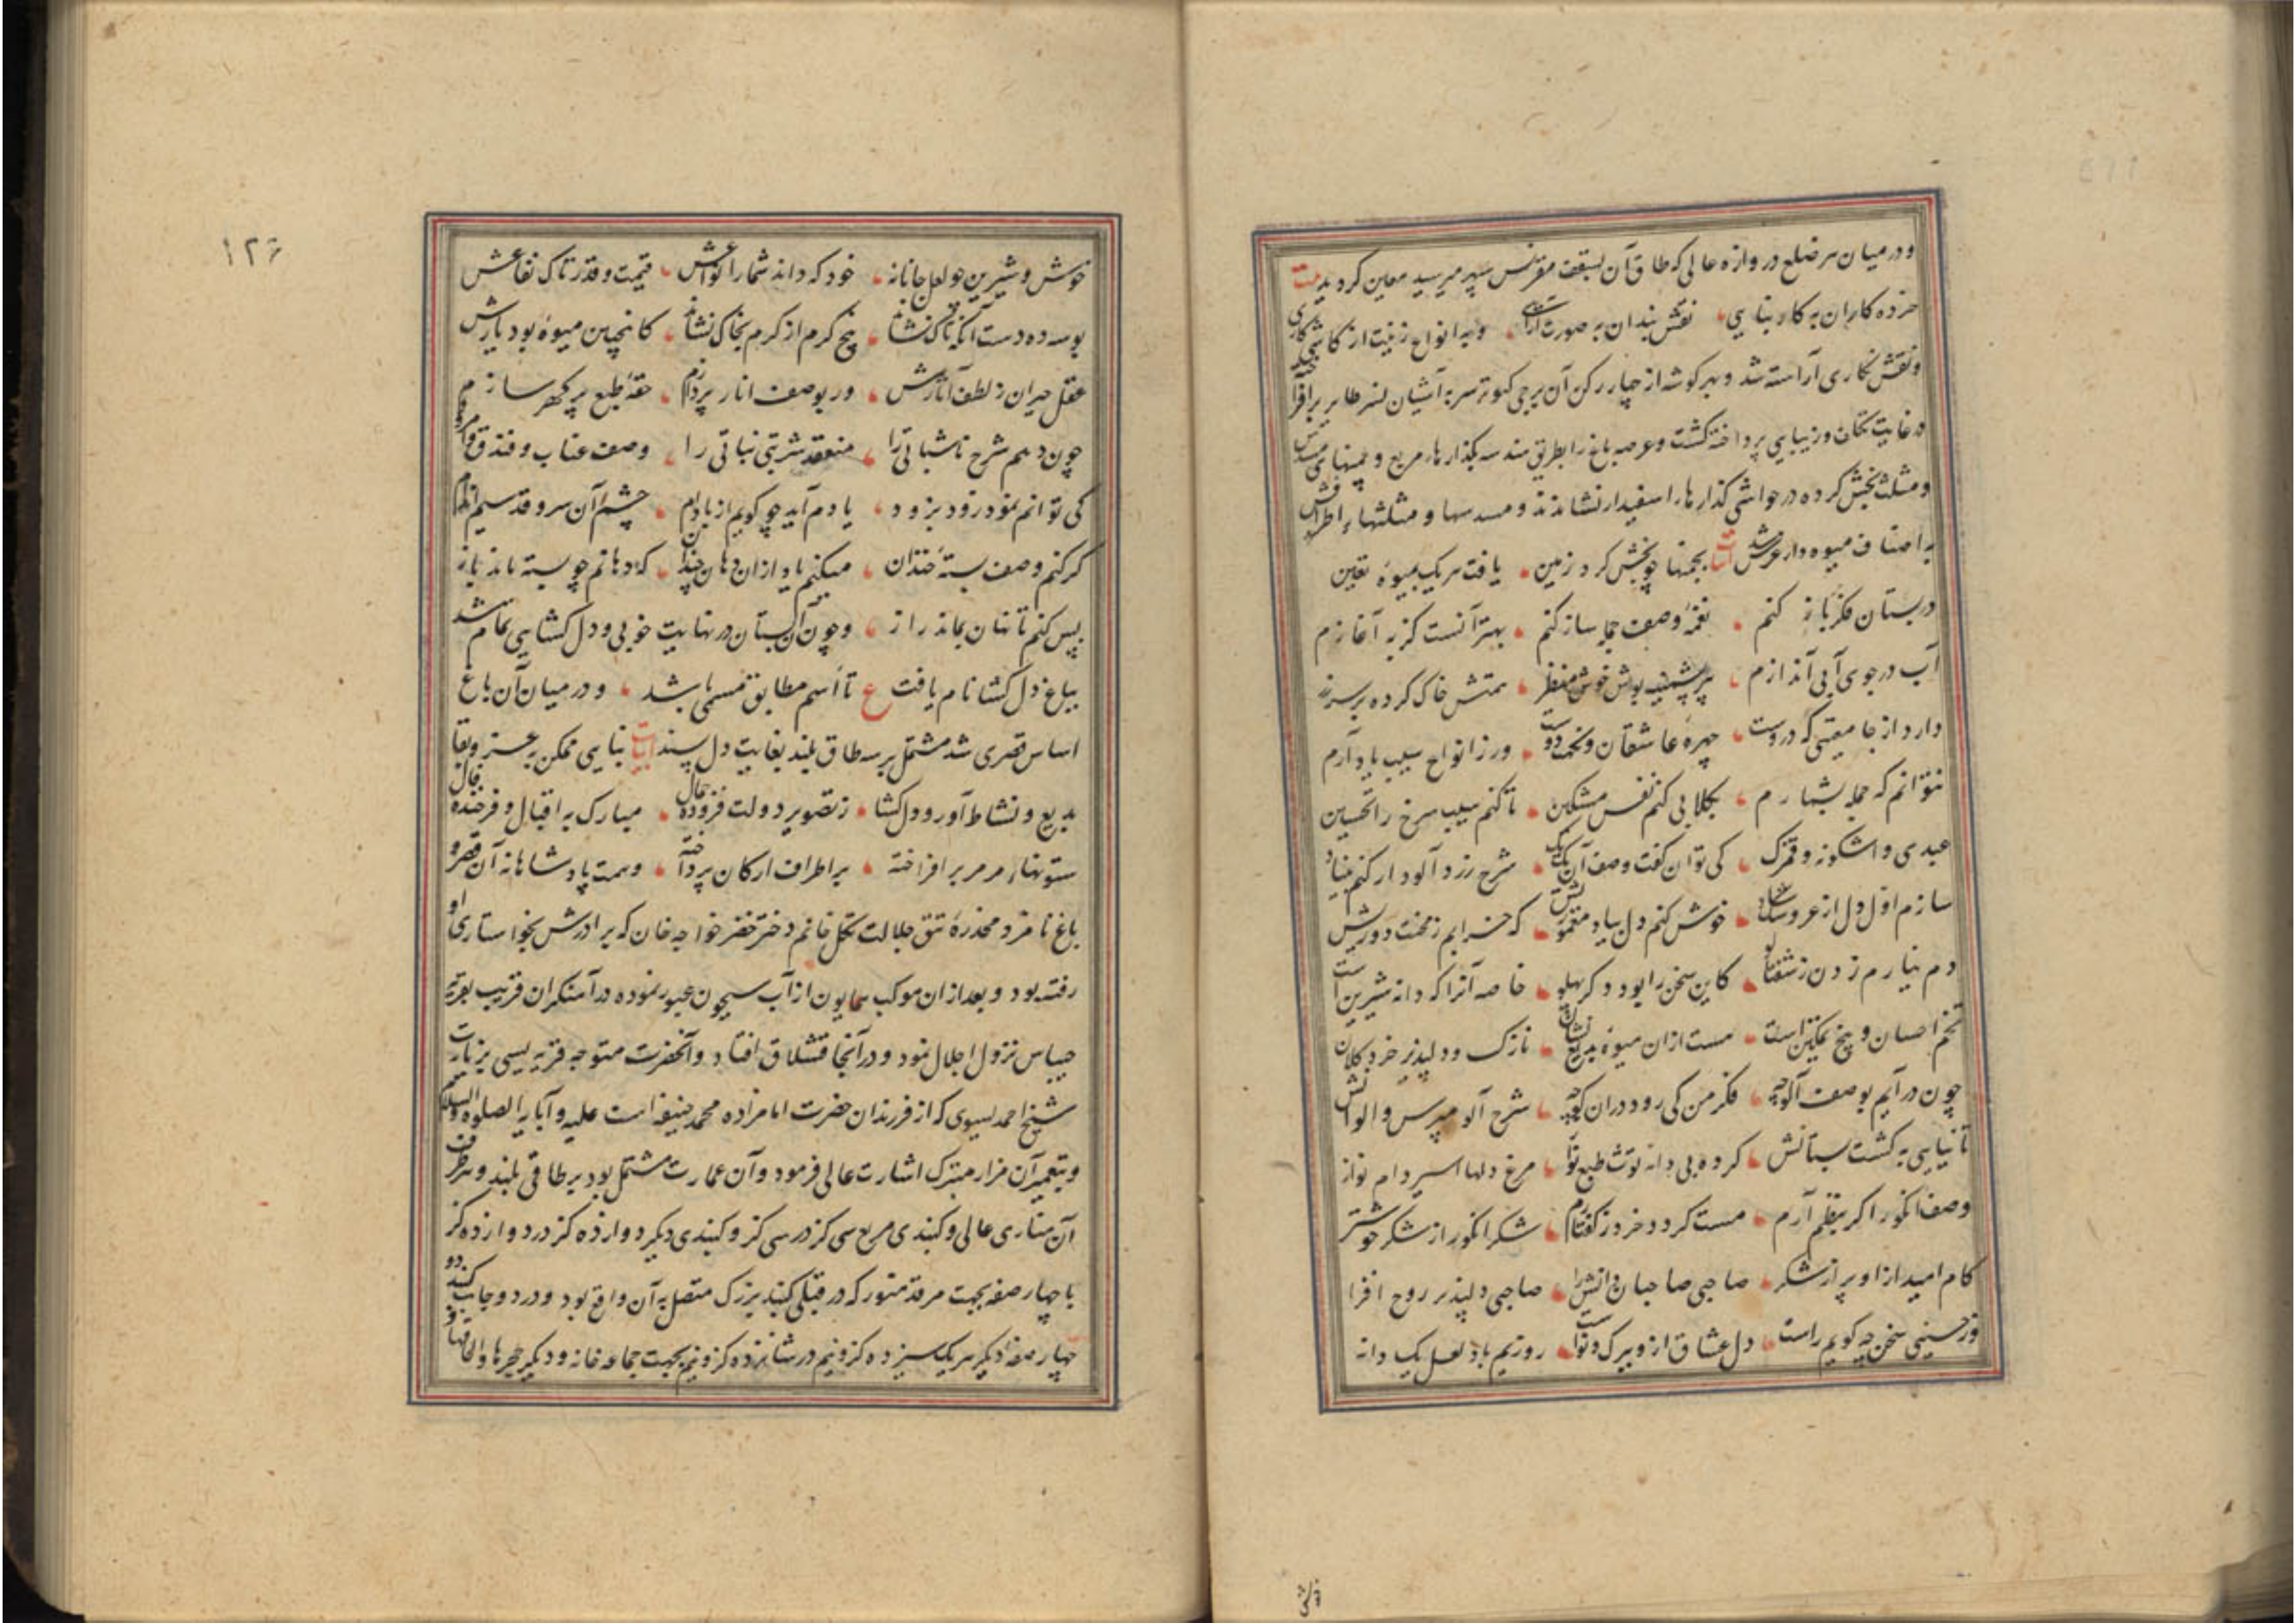 و در میان هر ضلع دروازه عالی که طاق آن بسقف مقرنس سپهر میرسید معین کردید بیت
خرده کاران به کار بنایی نقش بندان به صورت آرایی و به انواع زینت از کاشی کاری
و نقش نکاری آراسته شد و بهر کوشه از چهار رکن آن برجی کبوتر سر به آشیان نسر طایر بر افراخته
در غایت تکلف و زیبایی پرداخته کشت و عرصه باغ را بطریق هندسه بکذارهاء مربع و چمنهای مسدس
و مثلث بخش کرده در حواشی کذارها اسفیدار نشاندند و مسدسها و مثلثهاء اطرافش
به اصناف میوه دار عرس شد ابیات بچمنها چو بخش کرد زمین یافت هریک بمیوهٔ تعین
در بستان فکر باز کنم نغمهٔ وصف جمله ساز کنم بهتر آنست کز به آغازم
آب در جوی آبی آندازم پیر پشمینه پوش خوش منظر همتش خاک کرده بر سر زر
دارد از جامعیتی که دروست چهرهٔ عاشقان و نکهت دوست ور ز انواع سیب یاد آرم
نتوانم که جمله بشمارم بکلابی کنم نفس مشکین تا کنم سیب سرخ را تحسین
عبدی و اشکونه و قمرک کی توان کفت وصف آن یک یک شرح زرد آلود ار کنم بنیاد
سازم اول دل از عروسک شاد خوش کنم دل بیاد مقمورش که خرابم ز محنت دورش
دم نیارم زدن ز شفتالو کاین سخن را بود دکر پهلو خاصه آنرا که دانه شیرین است
تخم احسان و بیخ تمکین است هست ازان میوهٔ بدیع نشان نازک و دلپذیر خرد و کلان
چون در آیم بوصف آلوچه فکر من کی رود دران کوچه شرح آلو مپرس و الوانش
تا نیایی به کشت بستانش کرده بی دانه توت طبع نواز مرغ دلها اسیر دام نواز
وصف انکور اکر بنظم آرم مست کردد خرد ز کفتارم شکر انکور از شکر خوشتر
کام امید ازو پر از شکر صاحبی صاحبان دانش را صاحبی دلپذیر روح افزا
وز حسینی سخن چه کویم راست دل عشاق ازو ببرک و نواست روزیم باد لعل یک دانه
خوش و شیرین چو لعل جانانه خود که داند شمار انواعش قیمت و قدر تاک نفاعش
بوسه ده دست آنکه تاک نشاند بیخ کرم از کرم بخاک نشاند کانچنین میوه بود بارش
عقل حیران ز لطف آثارش ور بوصف انار پردازم حقهٔ طبع پر کهر سازم
چون دهم شرح ناشپاتی را منعقد شربتی نباتی را وصف عناب و فندق و امرود
کی توانم نمود زود بزود یادم آید چو کویم از بادام چشم آن سرو قد سیم اندام
کر کنم وصف پستهٔ خندان میکنم یاد ازان دهان چندان که دهانم چو پسته ماند باز
پس کنم تا نهان بماند راز و چون آن بستان در نهایت خوبی و دل کشایی تمام شد
بباغ دل کشا نام یافت ع تا اسم مطابق مسمی باشد و در میان آن باغ
اساس قصری شد مشتمل بر سه طاق بلند بغایت دل پسند ابیات بنایی ممکن به عز و بقا
بدیع و نشاط آور و دلکشا ز تصویر دولت فزوده جمال مبارک به اقبال و فرخنده فال
ستونهاء مرمر بر افراخته بر اطراف ارکان پرداخته و همت پادشاهانه آن قصر و
باغ نامزد مخدرهٔ تتق جلالت تکل خانم دختر خضر خواجه خان که برادرش بخواستاری او
رفته بود و بعد ازان موکب همایون از آب سیحون عبور نموده در آهنکران قریب بقریه
چیناس نزول اجلال نمود و در آنجا قشلاق افتاد و آنحضرت متوجه قریه یسی بزیارت
شیخ احمد یسوی که از فرزندان حضرت امامزاده محمد حنیفه است علیه و آبایه الصلوه و السلام
و بتعمیر آن مزار متبرک اشارت عالی فرمود و آن عمارت مشتمل بود بر طاقی بلند و بر طرف
آن مناری عالی و کنبدی مربع سی کز در سی کز و کنبدی دیکر دوازده کز در دوازده کز
با چهار صفه بجهت مرقد منور که در قبلی کنبد بزرک متصل به آن واقع بود و در دو جانب کنبد دو
چهار صفهٔ دیکر هریک سیزده کز و نیم در شانزده کز و نیم بجهت جماعه خانه و دیکر حجرها و الحاقها و
۱۲۶
خوش